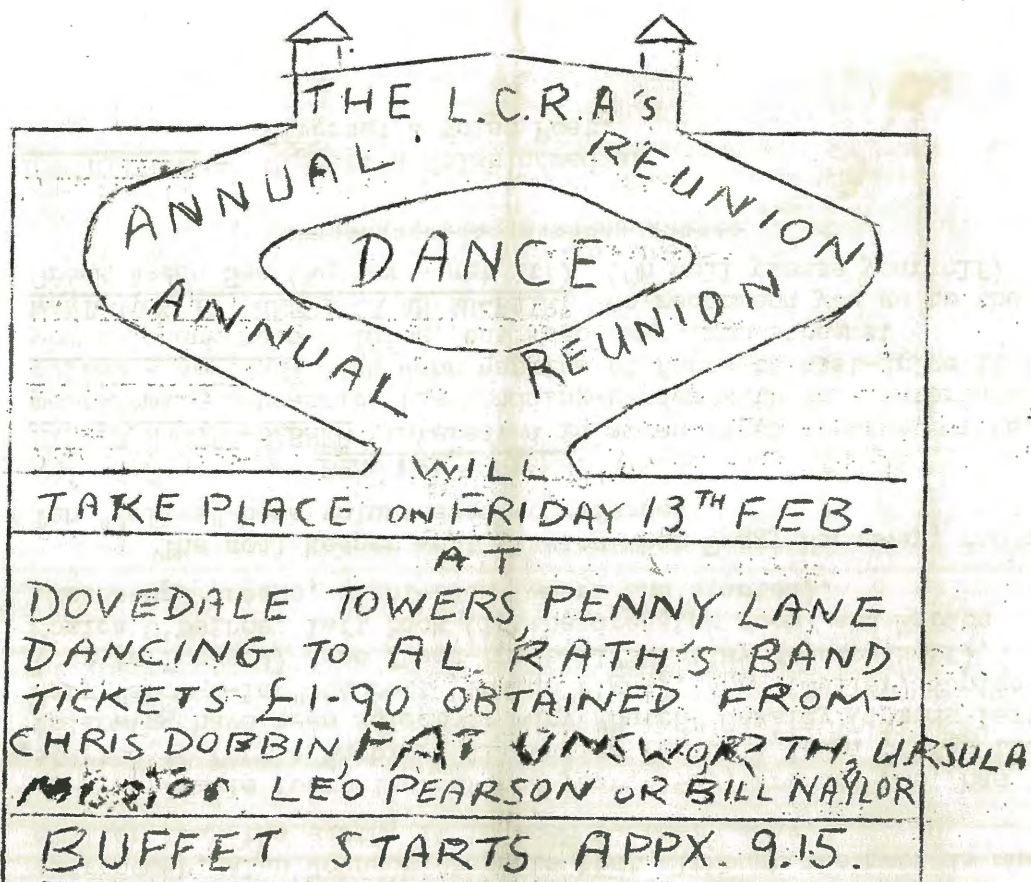 THE L.C.R.A's
ANNUAL REUNION
DANCE
ANNUAL REUNION
WILL
TAKE PLACE ON FRIDAY 13TH FEB.
AT
DOVEDALE TOWERS, PENNY LANE
DANCING TO AL RATH'S BAND
TICKETS £1-90 OBTAINED FROM
CHRIS DOBBIN, UNSWORTH, URSULA
LEO PEARSON OR BILL NAYLOR
BUFFET STARTS APPX 9.15